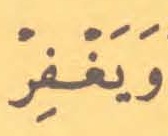 وَيَغْفِرْ